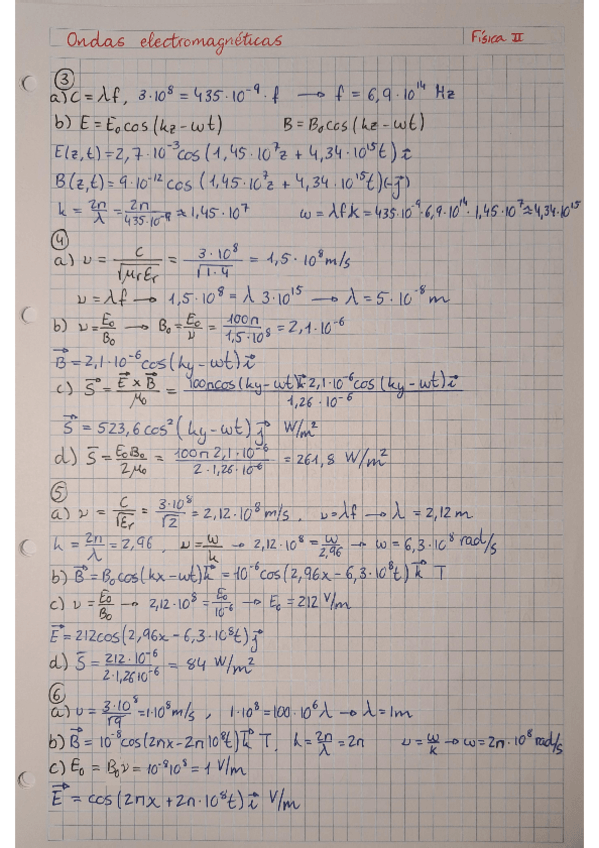 Ondas electromagnéticas
Física II
③
a) C = λf, 3·10⁸ = 435·10⁻⁹·f → f = 6,9·10¹⁴ Hz
b) E = E₀cos(kz-wt) B = B₀cos(kz-wt)
E(z,t) = 2,7·10⁻³cos(1,45·10⁷z + 4,34·10¹⁵t) i⃗
B(z,t) = 9·10⁻¹²cos(1,45·10⁷z + 4,34·10¹⁵t)(-j⃗)
k = 2π/λ = 2π/435·10⁻⁹ ≈ 1,45·10⁷ ω = λfk = 435·10⁻⁹·6,9·10¹⁴·1,45·10⁷ ≈ 4,34·10¹⁵
④
a) v = C/√μᵣεᵣ = 3·10⁸/√1·4 = 1,5·10⁸ m/s
v = λf → 1,5·10⁸ = λ 3·10¹⁵ → λ = 5·10⁻⁸ m
b) v = E₀/B₀ → B₀ = E₀/v = 100π/1,5·10⁸ = 2,1·10⁻⁶
B⃗ = 2,1·10⁻⁶cos(ky-wt) i⃗
c) S⃗ = E⃗ x B⃗/μ₀ = 100πcos(ky-wt)k⃗ 2,1·10⁻⁶cos(ky-wt) i⃗/1,26·10⁻⁶
S⃗ = 523,6cos²(ky-wt) j⃗ W/m²
d) S̄ = E₀B₀/2μ₀ = 100π 2,1·10⁻⁶/2·1,26·10⁻⁶ = 261,8 W/m²
⑤
a) v = C/√εᵣ = 3·10⁸/√2 = 2,12·10⁸ m/s, v = λf → λ = 2,12 m
k = 2π/λ = 2,96, v = w/k → 2,12·10⁸ = w/2,96 → w = 6,3·10⁸ rad/s
b) B⃗ = B₀cos(kx-wt)k⃗ = 10⁻⁶cos(2,96x - 6,3·10⁸t) k⃗ T
c) v = E₀/B₀ → 2,12·10⁸ = E₀/10⁻⁶ → E₀ = 212 V/m
E⃗ = 212cos(2,96x - 6,3·10⁸t) j⃗
d) S̄ = 212·10⁻⁶/2·1,26·10⁻⁶ = 84 W/m²
⑥
a) v = 3·10⁸/√9 = 1·10⁸ m/s, 1·10⁸ = 100·10⁶λ → λ = 1m
b) B⃗ = 10⁻⁸cos(2πx - 2π10⁸t) k⃗ T, k = 2π/λ = 2π v = w/k → w = 2π·10⁸ rad/s
c) E₀ = B₀v = 10⁻⁸10⁸ = 1 V/m
E⃗ = cos(2πx + 2π·10⁸t) i⃗ V/m